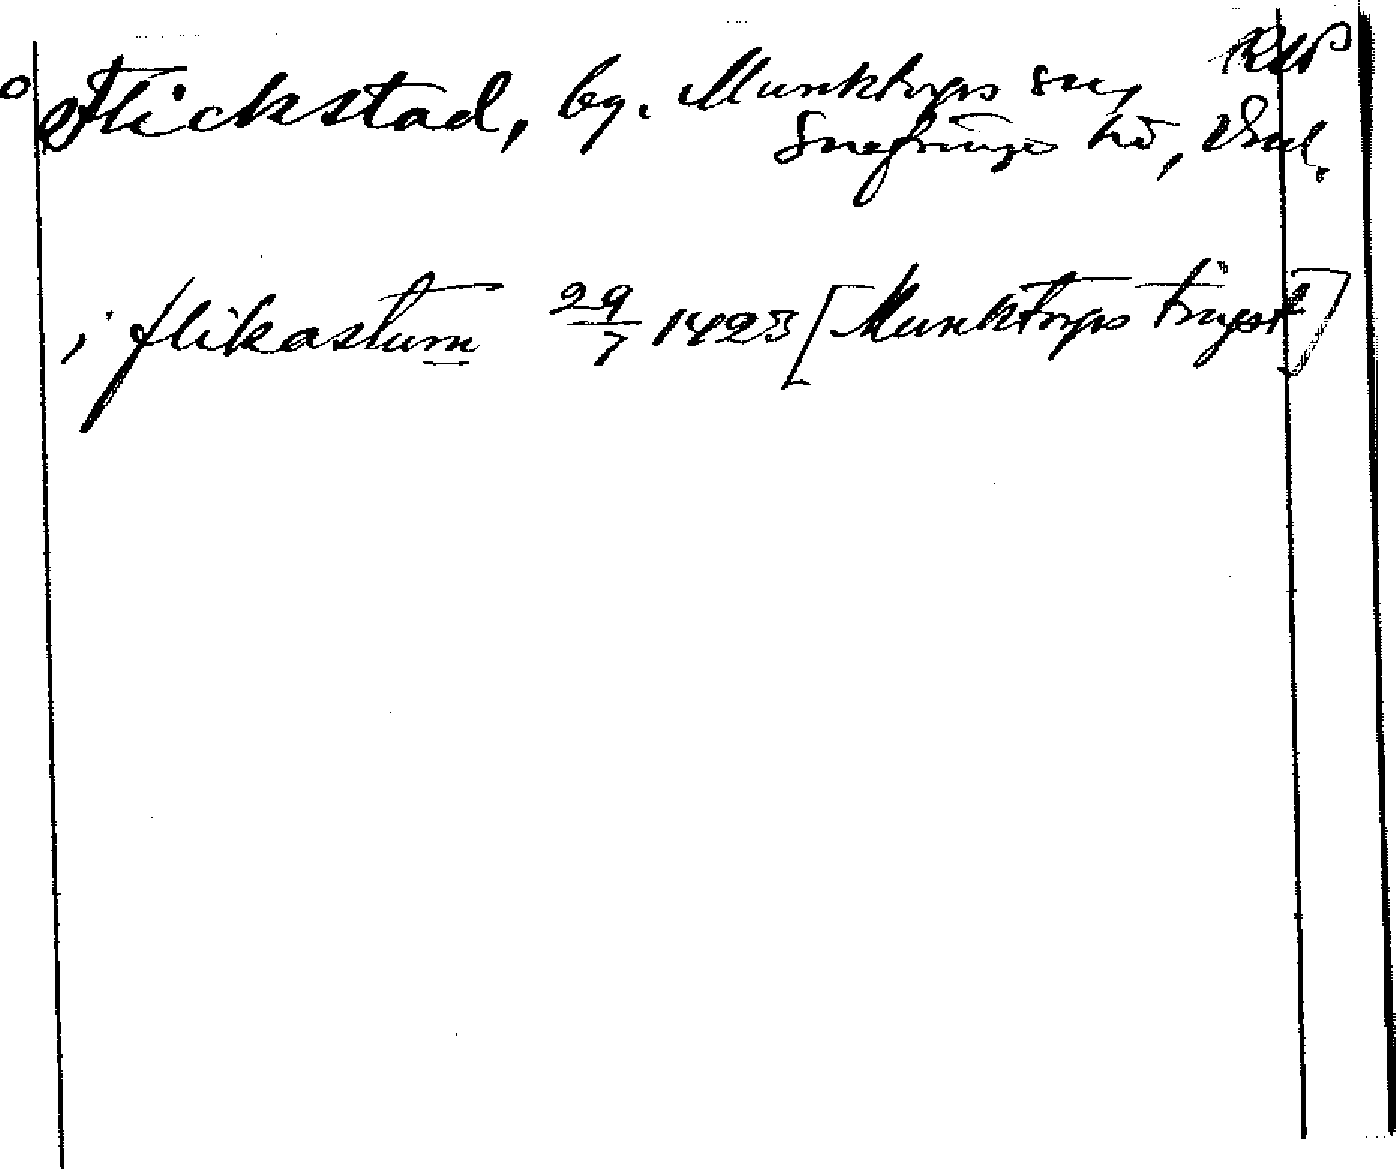 Flickstad, by. Munktorps sn,
Snefringe hd, Vsml.
i flikastum 29/7 1423 [Munktorps tingst]